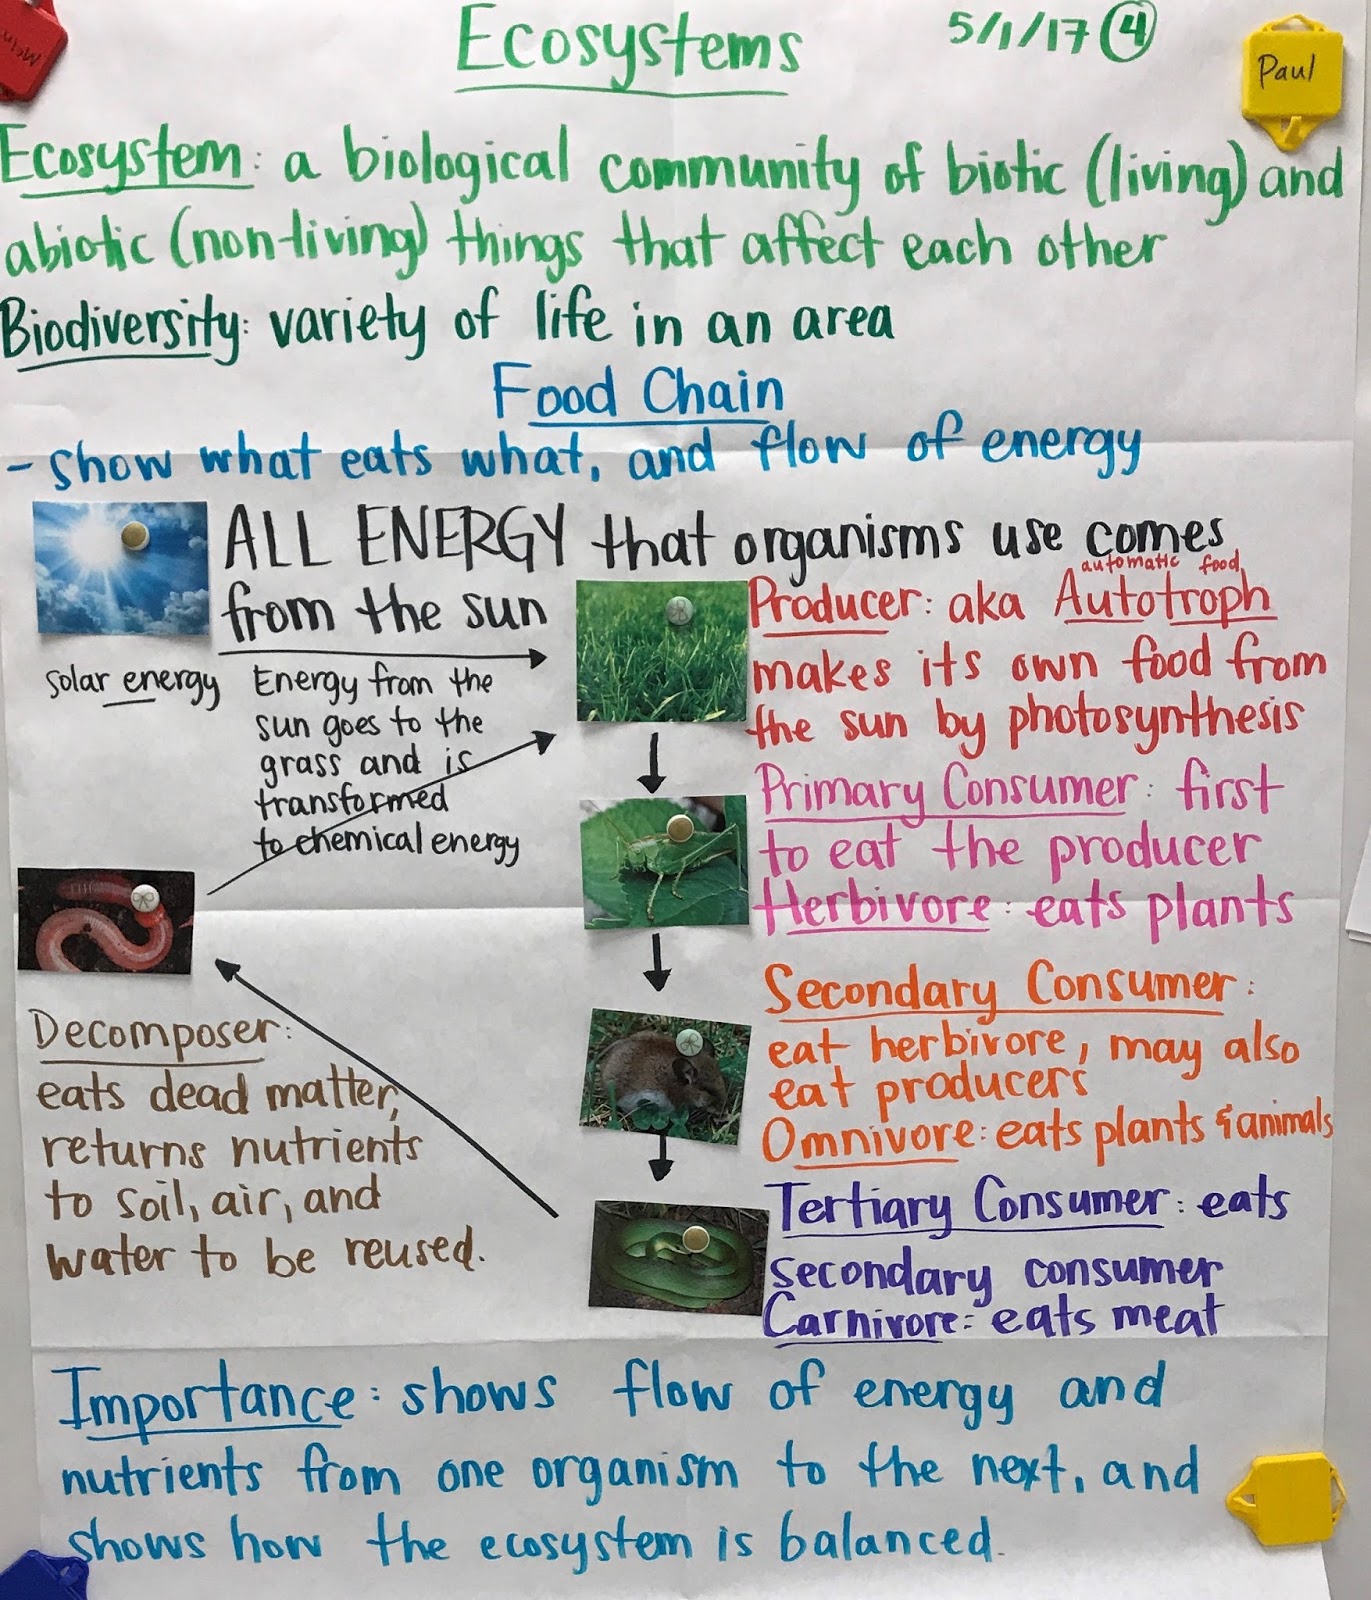 Ecosystems
5/1/17 4
Paul
Ecosystem: a biological community of biotic (living) and
abiotic (non-living) things that affect each other
Biodiversity: variety of life in an area
Food Chain
- show what eats what, and flow of energy
ALL ENERGY that organisms use comes
from the sun
solar energy
Energy from the
sun goes to the
grass and is
transformed
to chemical energy
automatic food
Producer: aka Autotroph
makes its own food from
the sun by photosynthesis
Primary Consumer: first
to eat the producer
Herbivore: eats plants
Secondary Consumer:
eat herbivore, may also
eat producers
Omnivore: eats plants & animals
Tertiary Consumer: eats
secondary consumer
Carnivore: eats meat
Decomposer:
eats dead matter,
returns nutrients
to soil, air, and
water to be reused.
Importance: shows flow of energy and
nutrients from one organism to the next, and
shows how the ecosystem is balanced.